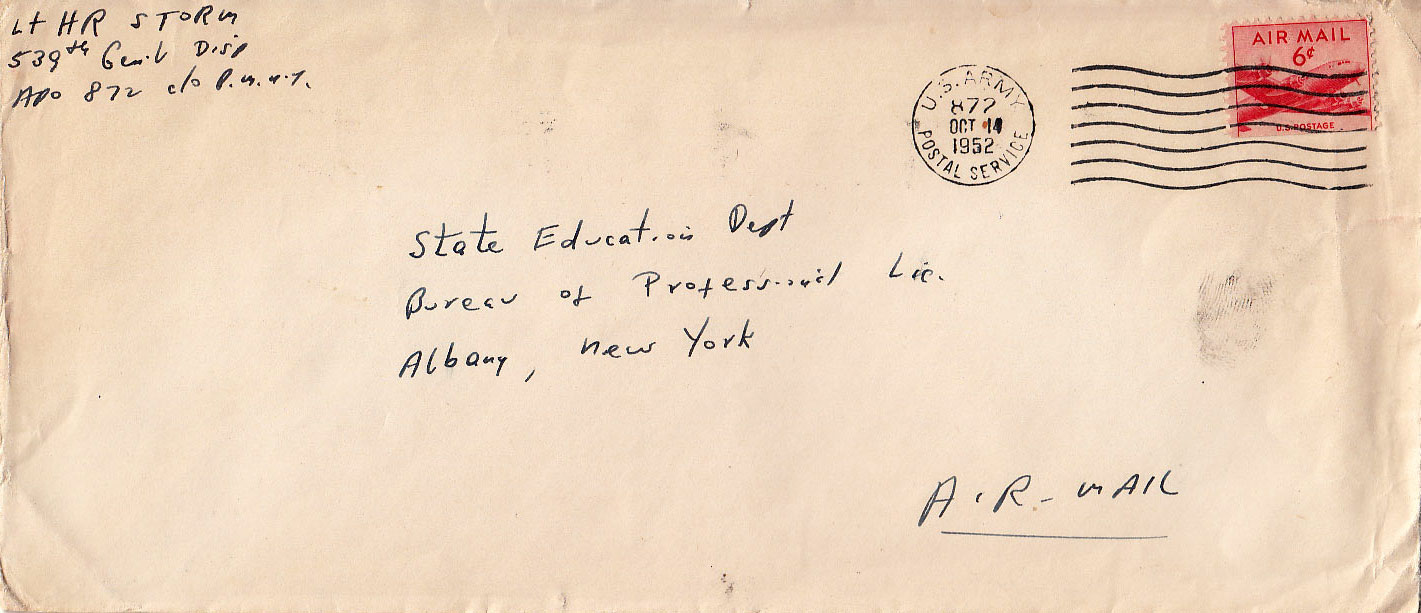 Lt HR STORM
539th Gen'l Disp
APO 872 c/o P.M. N.Y.
AIR MAIL
6¢
U.S. POSTAGE
U.S. ARMY
872
OCT 14
1952
POSTAL SERVICE
State Education Dept
Bureau of Professional Lic.
Albany, New York
AIR-MAIL